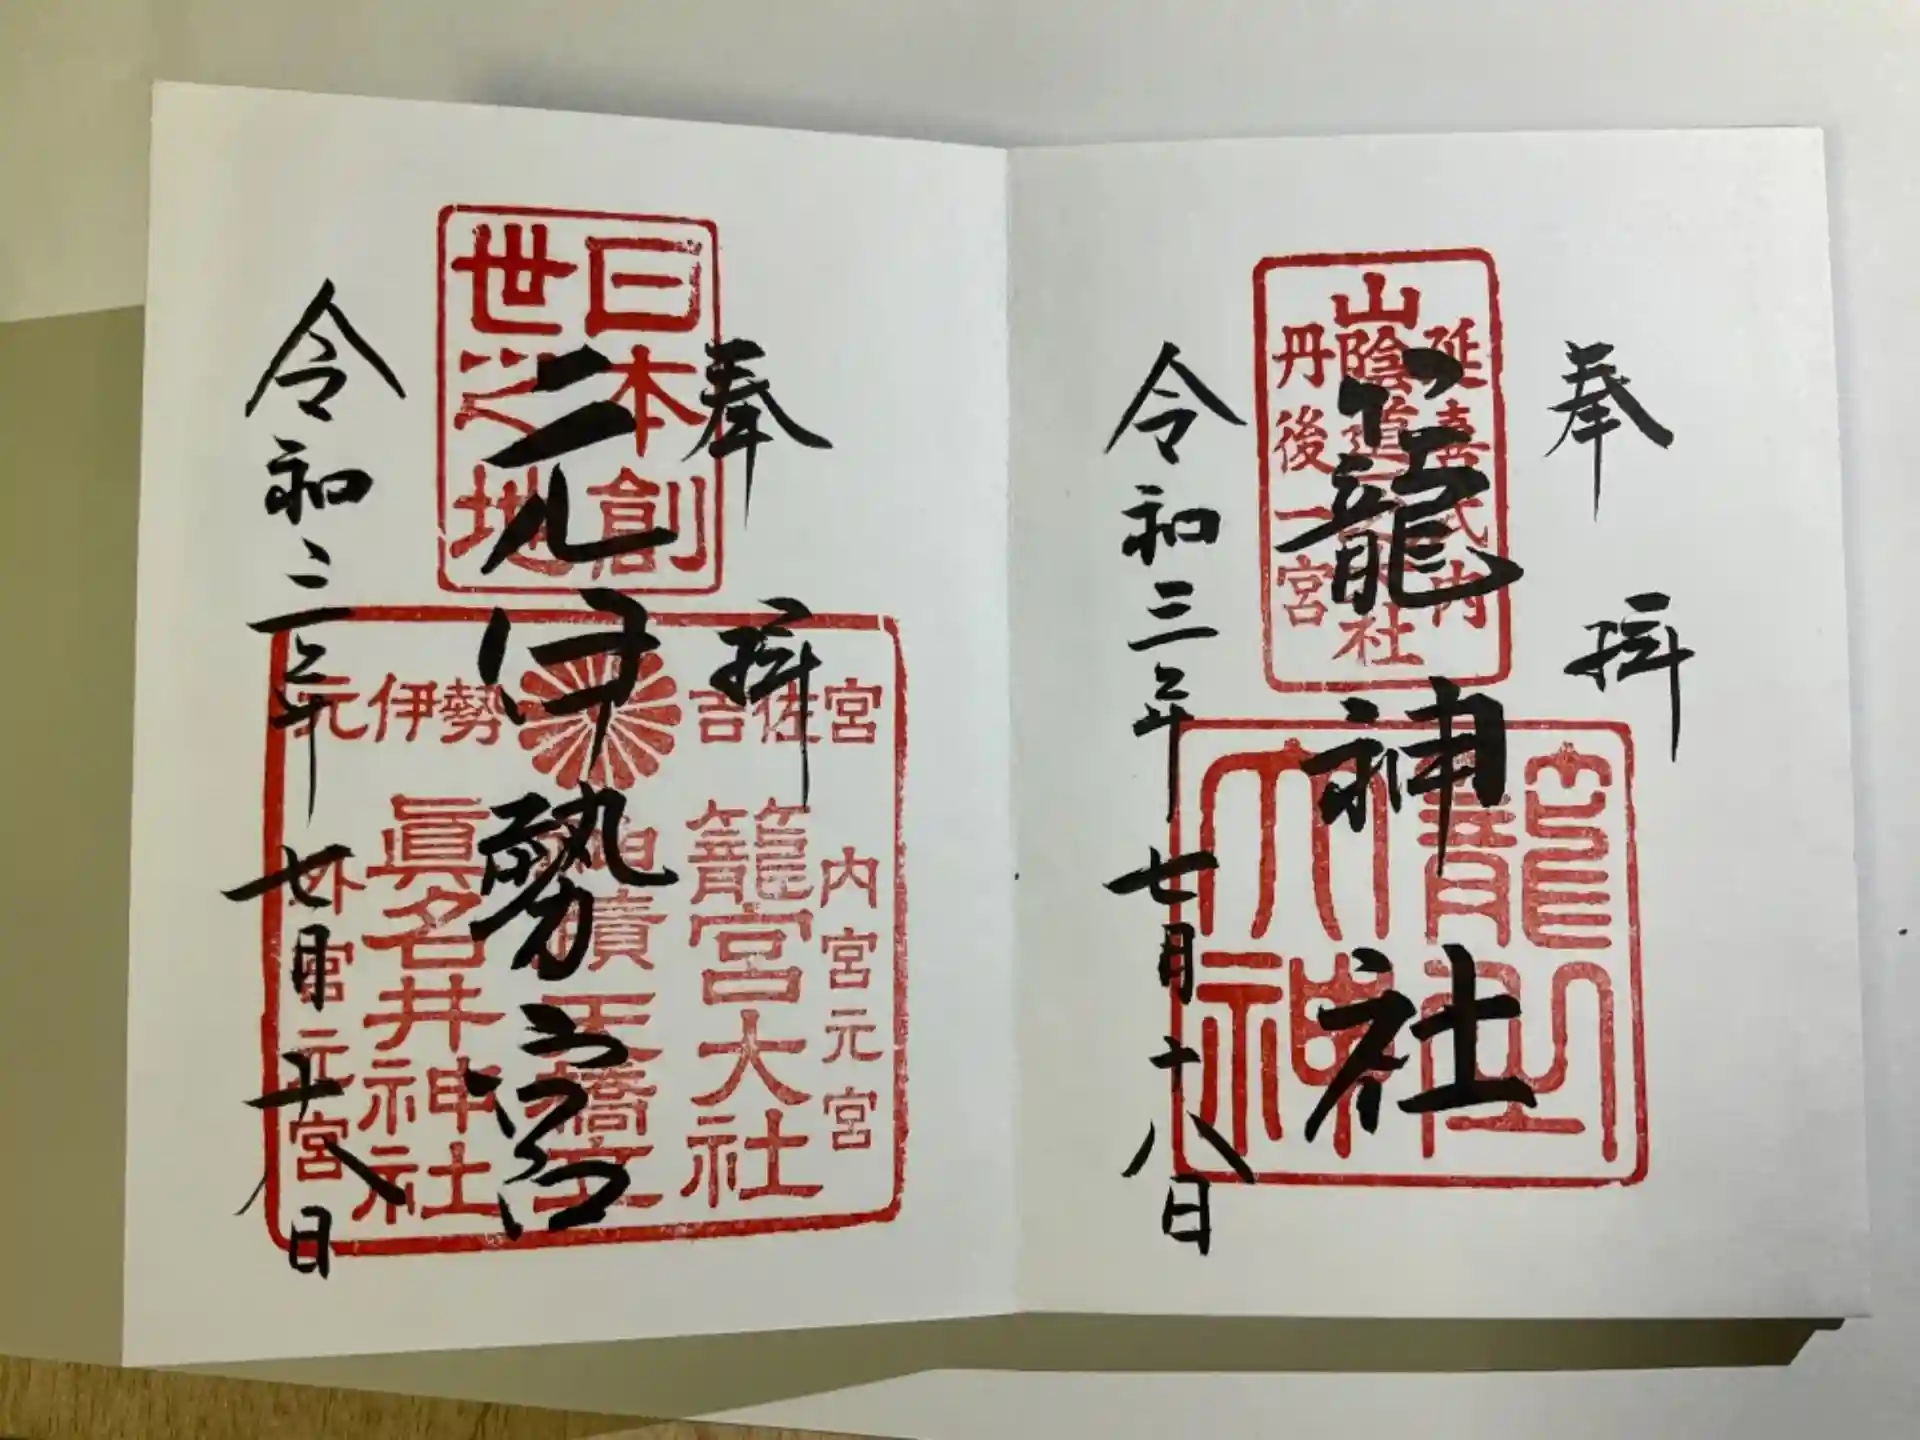 奉拝
延喜式内
山陰道一之大社
丹後一宮
籠神社
籠之大神
令和三年七月十八日
奉拝
日本創
世之地
元伊勢宮
元伊勢
吉佐宮
内宮元宮
籠宮大社
天橋立
眞名井神社
外宮元宮
令和三年七月十八日